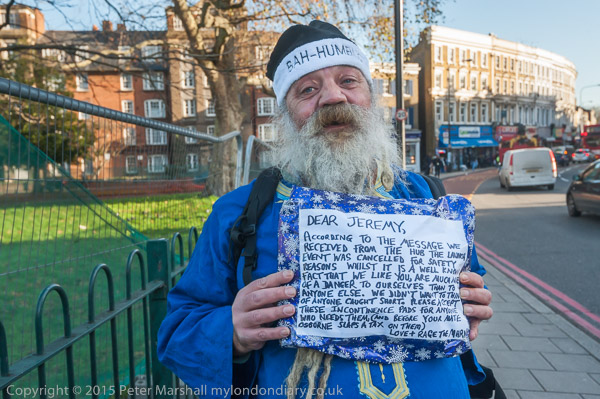 BAH-HUMBUG
DEAR JEREMY,
ACCORDING TO THE MESSAGE WE
RECEIVED FROM THE HUB THE LAUNCH
EVENT WAS CANCELLED FOR SAFETY
REASONS WHILST IT IS A WELL KNOWN
FACT THAT WE LIKE YOU, ARE MUCH MORE
OF A DANGER TO OURSELVES THAN TO
ANYONE ELSE. WE DIDN'T WANT TO THINK
OF ANYONE CAUGHT SHORT. PLEASE ACCEPT
THESE INCONTINENCE PADS FOR ANYONE
WHO NEEDS THEM (AND BEFORE YOUR MATE
OSBORNE SLAPS A TAX ON THEM)
LOVE + RAGE THE
Copyright © 2015 Peter Marshall mylondondiary.co.uk